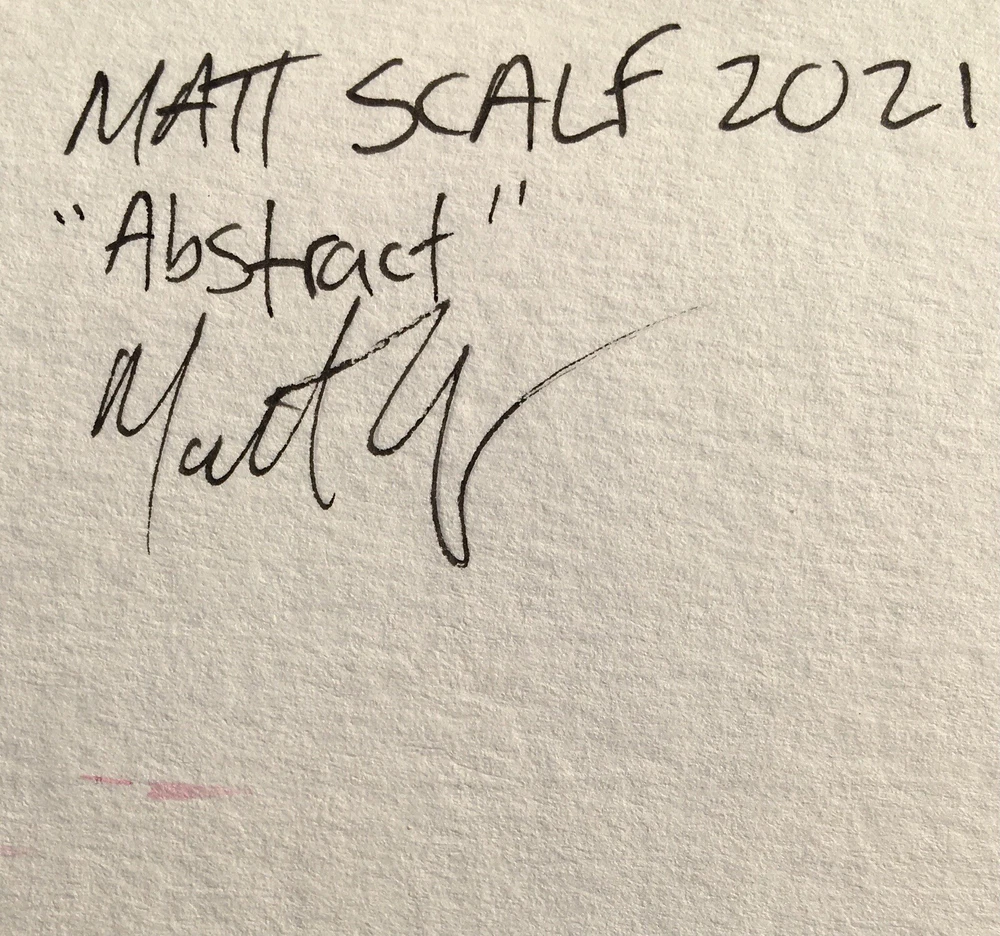 MATT SCALF 2021
"Abstract"
Matt